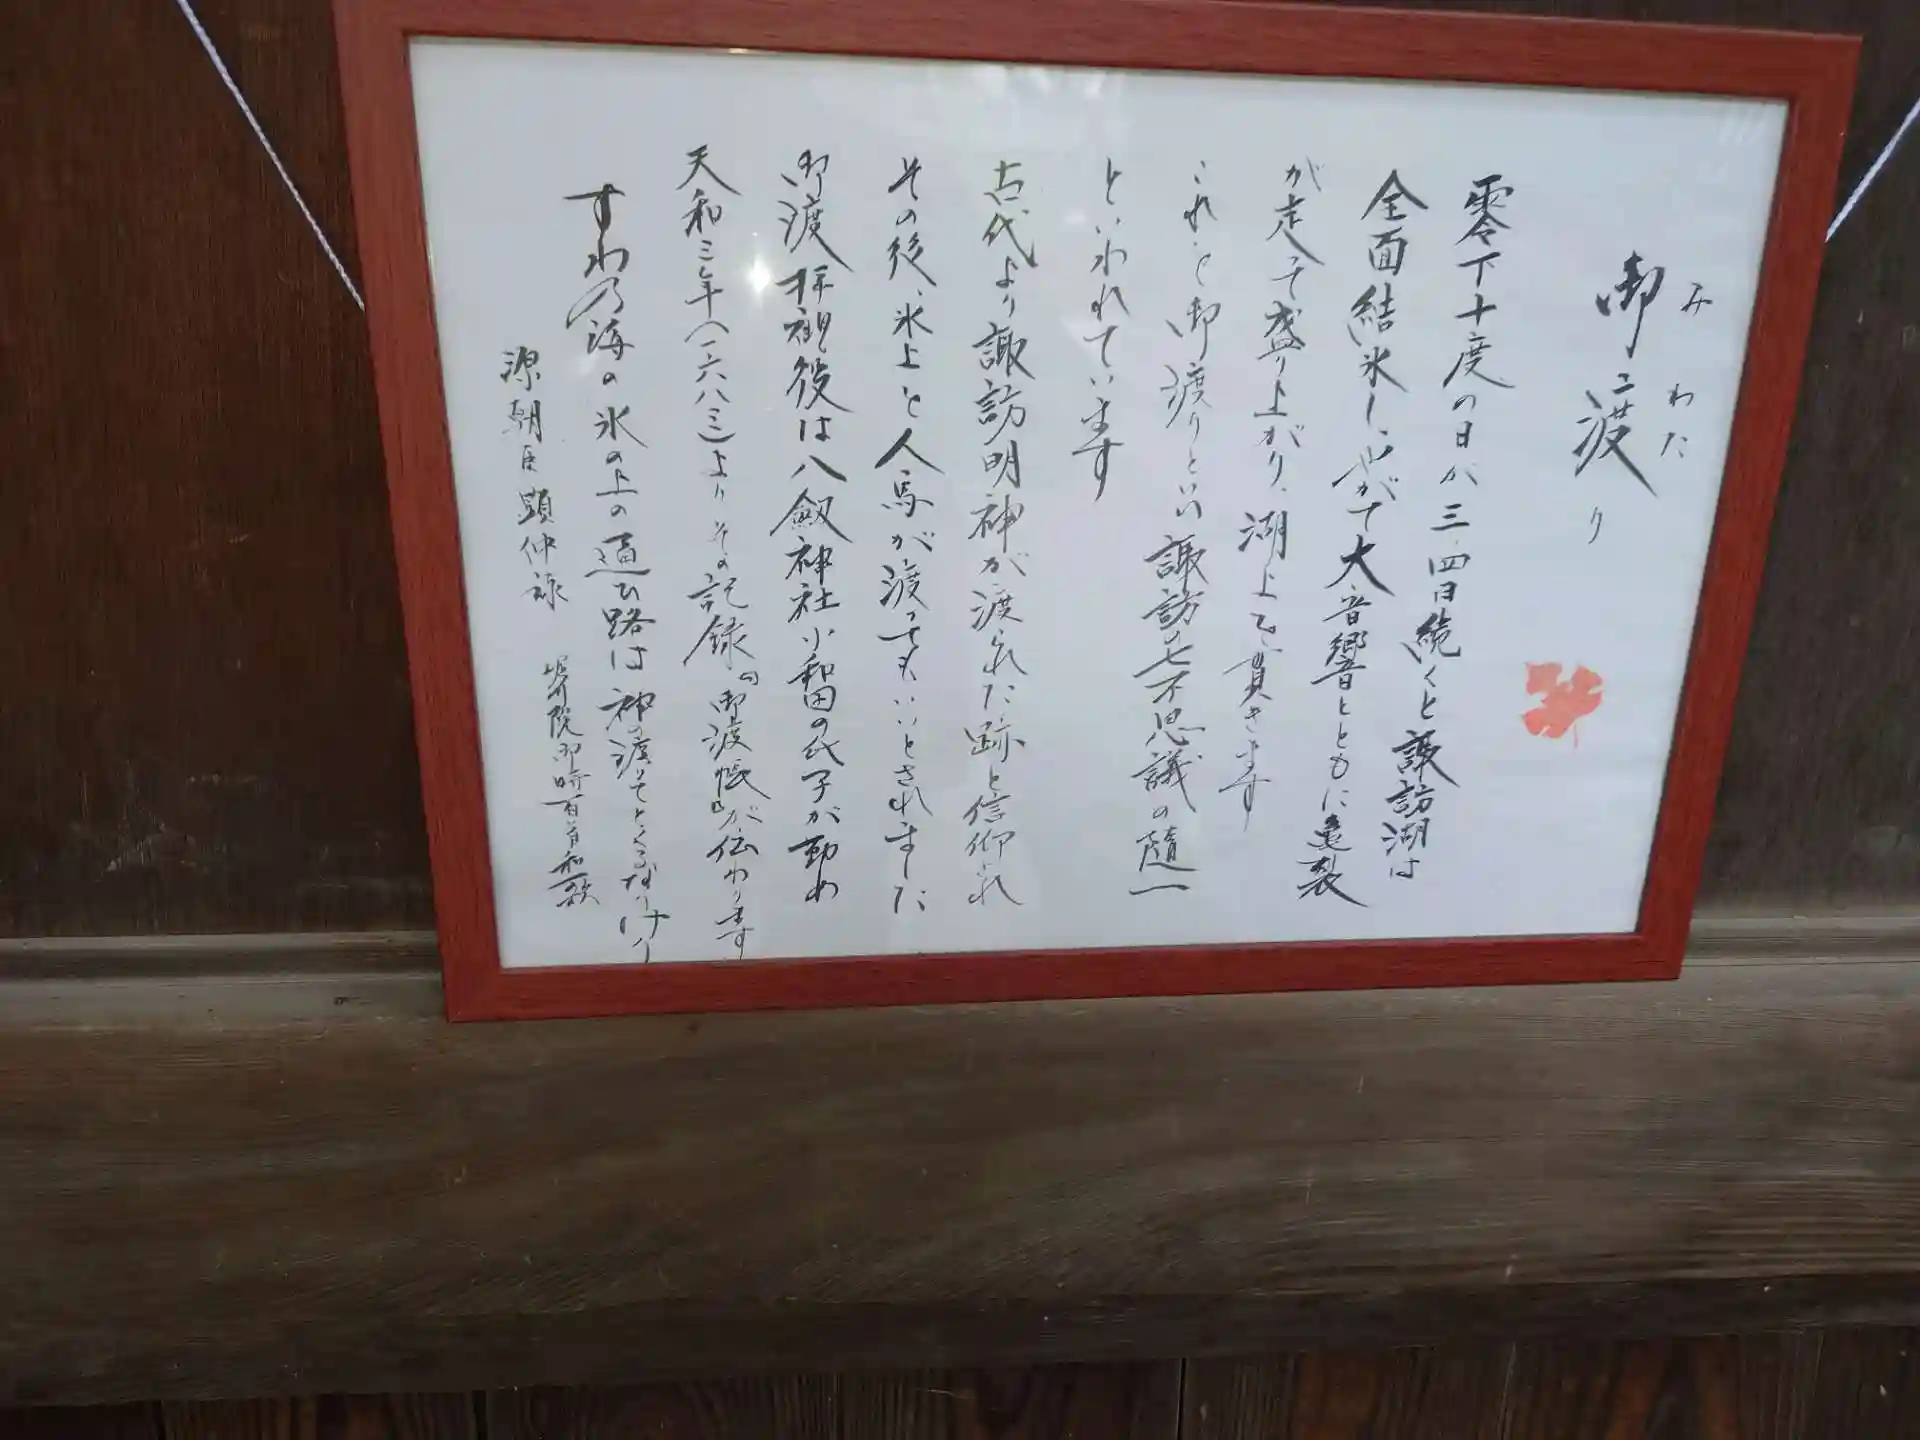 みわたり
御渡
零下十度の日が三、四日続くと諏訪湖は
全面結氷し、やがて大音響とともに亀裂
が走って盛り上がり、湖上を貫きます
これを御渡りといい諏訪の七不思議の随一
といわれています
古代より諏訪明神が渡られた跡と信仰され
その後、氷上を人馬が渡ってもいいとされました
御渡拝観役は八劔神社小和田の氏子が勤め
天和三年(一六八三)よりその記録『御渡帳』が伝わります
すわの海の氷の上の通ひ路は神の渡りてとくるなりけり
源朝臣顕仲 堀河院御時百首和歌